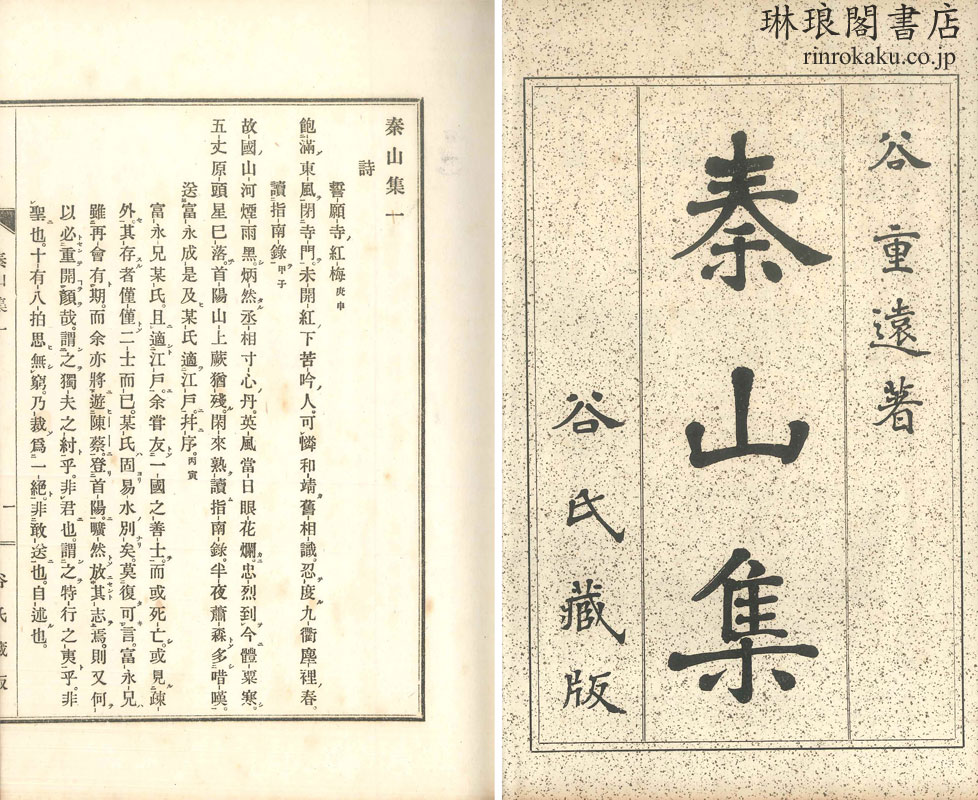 琳琅閣書店
rinrokaku.co.jp
谷重遠著
秦山集
谷氏藏版
秦山集一
詩
誓願寺紅梅庚申
飽滿東風閉寺門。未開紅下苦吟人。可憐和靖舊相識。忍度九衢塵裡春。
讀指南錄甲子
故國山河煙雨黑。炳然丞相寸心丹。英風當日眼花爛。忠烈到今體粟寒。
五丈原頭星已落。首陽山上蕨猶殘。閑來熟讀指南錄。半夜蕭森多唶嘆。
送富永成是及某氏適江戶。幷序。丙寅
富永兄某氏。且適江戶。余嘗友一國之善士。而或死亡。或見疎
外。其存者僅僅二士而已。某氏固易水別矣。莫復可言。富永兄
雖再會有期。而余亦將遊陳蔡。登首陽。曠然放其志焉。則又何
以必重開顏哉。謂之獨夫之紂乎。非君也。謂之特行之夷乎。非
聖也。十有八拍思無窮。乃裁爲一絕。非敢送也。自述也。
秦山集一
一
谷氏藏版